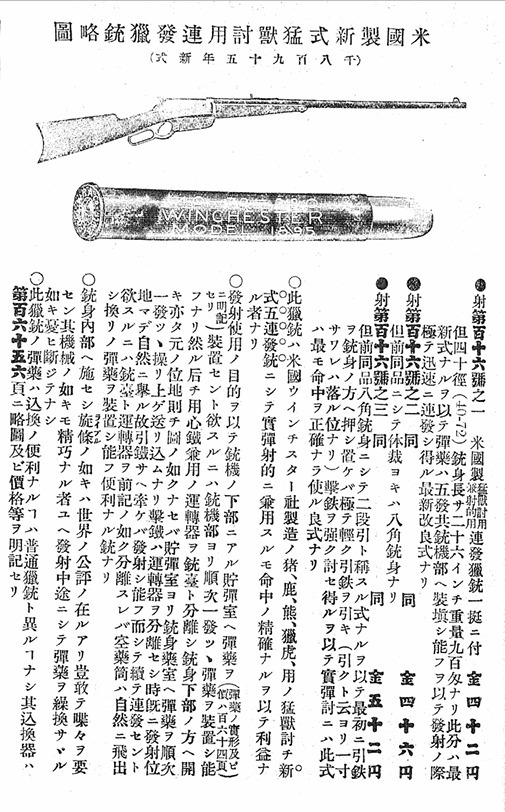 米國製新式猛獸討用連發獵銃略圖
(千八百九十五年新式)
WINCHESTER
MODEL 1895
●射第百十六號之一 米國製猛獸討用兼射的用連發獵銃一挺ニ付 金四十二円
但四十徑(40-72)銃身長サ二十六インチ重量九百匁ナリ此分ハ最
新式ナルヲ以テ彈藥ハ五發共銃機部ヘ裝塡シ能フヲ以テ發射ノ際
極テ迅速ニ連發シ得ル最新改良式ナリ
●射第百十六號之二 同 同 金四十六円
但前同品ニシテ体裁ヨキハ八角銃身ナリ
●射第百十六號之三 同 同 金五十二円
但前同品八角銃身ニシテ二段引ト稱スル式ナルヲ以テ最初ニ引鉄
ヲ銃身ノ方ヘ押シ置ケバ極テ輕ク引鉄ヲ引キ(引クト云ヨリ一寸
サワレハ落ル位ナリ)擊鉄ヲ強ク討セ得ルヲ以テ實彈討ニハ此式
ハ最モ命中ヲ正確ナラ使ル良式ナリ
○此獵銃ハ米國ウインチスター社製造ノ猪、鹿、熊、獵虎、用ノ猛獸討チ新
式五連發銃ニシテ實彈射的ニ兼用スルモ命中ノ精確ナルヲ以テ利益ナ
ル者ナリ
○發射使用ノ目的ヲ以テ銃機ノ下部ニアル貯彈室ヘ彈藥ヲ(彈藥ノ實形及ビ價ハ百六十四頁
ニ明記セリ)裝置セント欲スルニハ銃機部ヨリ順次一發ツヽ彈藥ヲ裝置シ能
フナリ然ル后チ用心鐵兼用ノ運轉器ヲ銃臺ト分離シ銃身下部ノ方ヘ開
キ亦タ元ノ位地則チ圖ノ如クナセバ貯彈室ヨリ銃身藥室ヘ彈藥ヲ順次
一發ツヽ操リ上ゲ送リ込ムナリ擊鐵ハ運轉器ヲ分離セシ時既ニ發射位
地マデ自然ニ擧ル故引鐵サヘ牽ケバ發射シ能フ而シテ續テ連發セント
欲スルニハ銃臺ト運轉器ヲ前記ノ如ク分離スレバ空藥筒ハ自然ニ飛出
シ換リノ彈藥ヲ裝置シ能フ便利ナル銃ナリ
○銃身內部ヘ施セシ旋條ノ如キハ世界ノ公評ノ在ルアリ豈敢テ喋々ヲ要
セン其機械ノ如キモ精巧ナル者ユヘ發射中途ニシテ彈藥ヲ繰換サヾル
如キ憂ヒ斷ジテナシ
○此獵銃ノ彈藥ハ込換ノ便利ナルヿハ普通獵銃ト異ルヿナシ其込換器ハ
第百六十五六頁ニ略圖及ビ價格等ヲ明記セリ